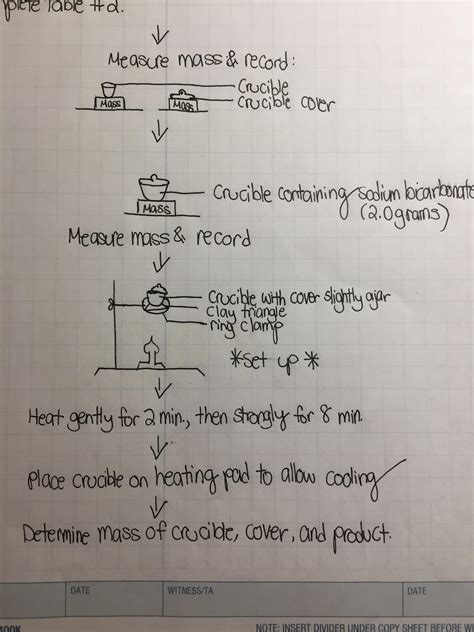 plete Table #2.
Measure mass & record:
Crucible
Mass
Mass
Crucible cover
Crucible containing sodium bicarbonate
(2.0 grams)
Mass
Measure mass & record
Crucible with cover slightly ajar
clay triangle
ring clamp
*set up*
Heat gently for 2 min., then strongly for 8 min.
Place crucible on heating pad to allow cooling
Determine mass of crucible, cover, and product.
DATE
WITNESS/TA
DATE
BOOK
NOTE: INSERT DIVIDER UNDER COPY SHEET BEFORE W